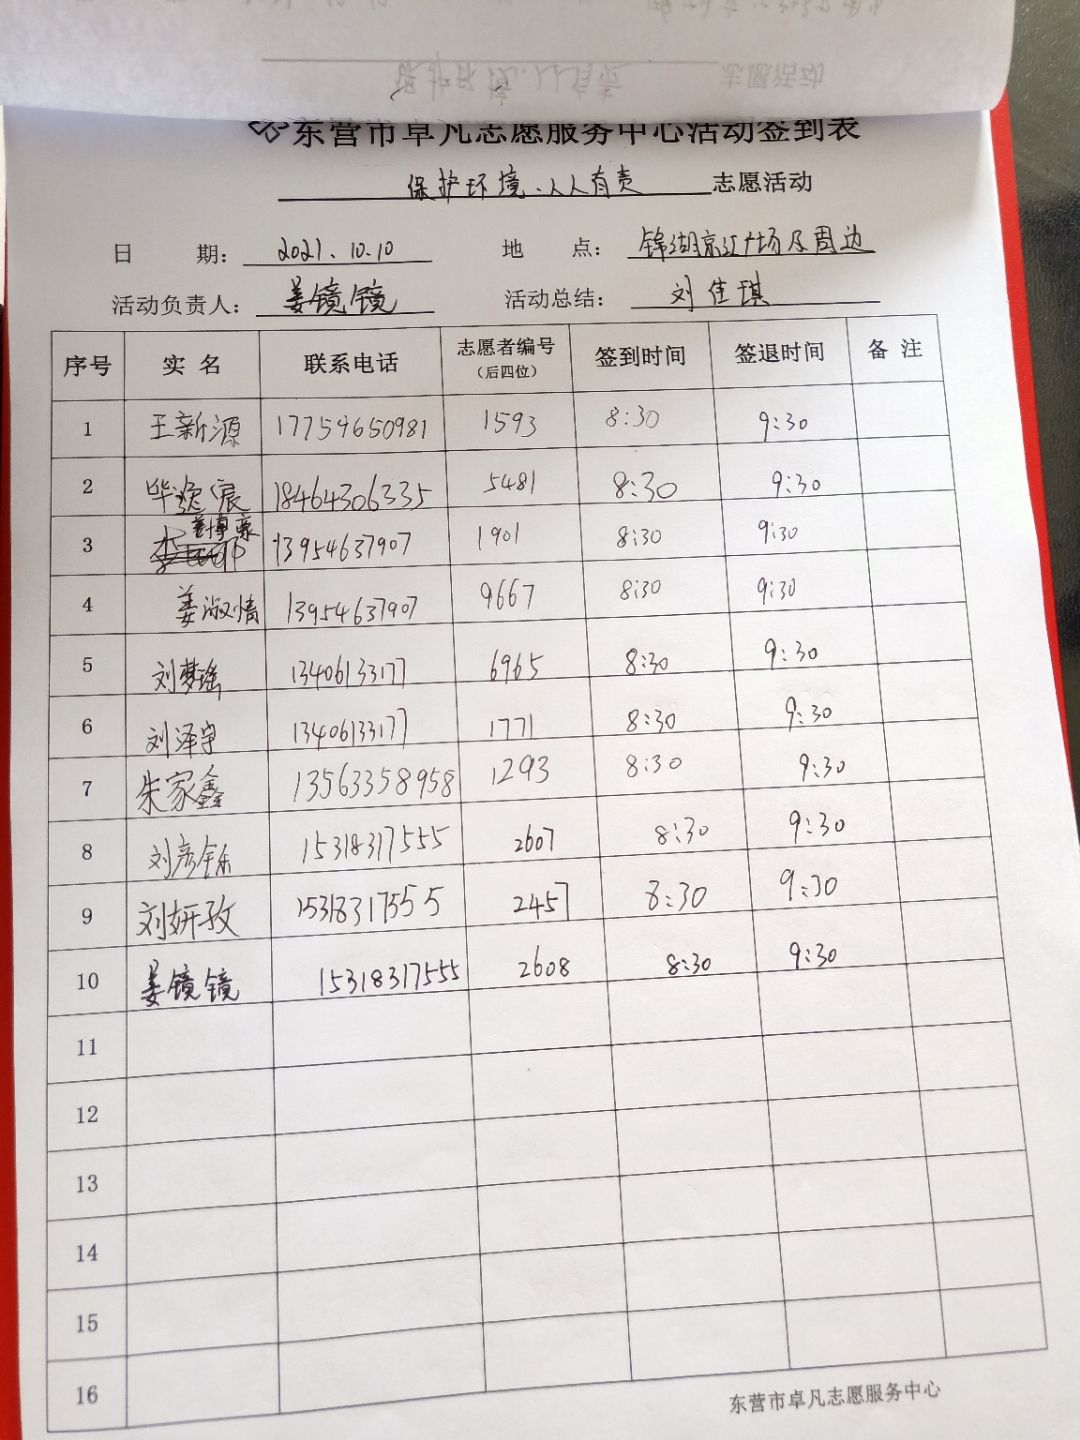 东营市卓凡志愿服务中心活动签到表
保护环境、人人有责 志愿活动
日 期: 2021.10.10 地 点: 锦湖京江广场及周边
活动负责人: 姜镜镜 活动总结: 刘佳琪
序号 实 名 联系电话 志愿者编号 (后四位) 签到时间 签退时间 备 注
1 王新源 17754650981 1593 8:30 9:30
2 毕逸宸 18464306335 5481 8:30 9:30
3 姜博豪 13954637907 1901 8:30 9:30
4 姜淑情 13954637907 9667 8:30 9:30
5 刘梦瑶 13406133177 6965 8:30 9:30
6 刘泽宇 13406133177 1771 8:30 9:30
7 朱家鑫 13563358958 1293 8:30 9:30
8 刘彦铄 15318317555 2607 8:30 9:30
9 刘妍孜 15318317555 2457 8:30 9:30
10 姜镜镜 15318317555 2608 8:30 9:30
11
12
13
14
15
16
东营市卓凡志愿服务中心